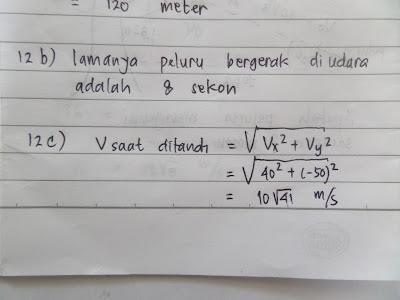 = 120 meter
12 b) lamanya peluru bergerak di udara
adalah 8 sekon
12 c) V saat ditandi = √Vx² + Vy²
= √40² + (-50)²
= 10√41 m/s